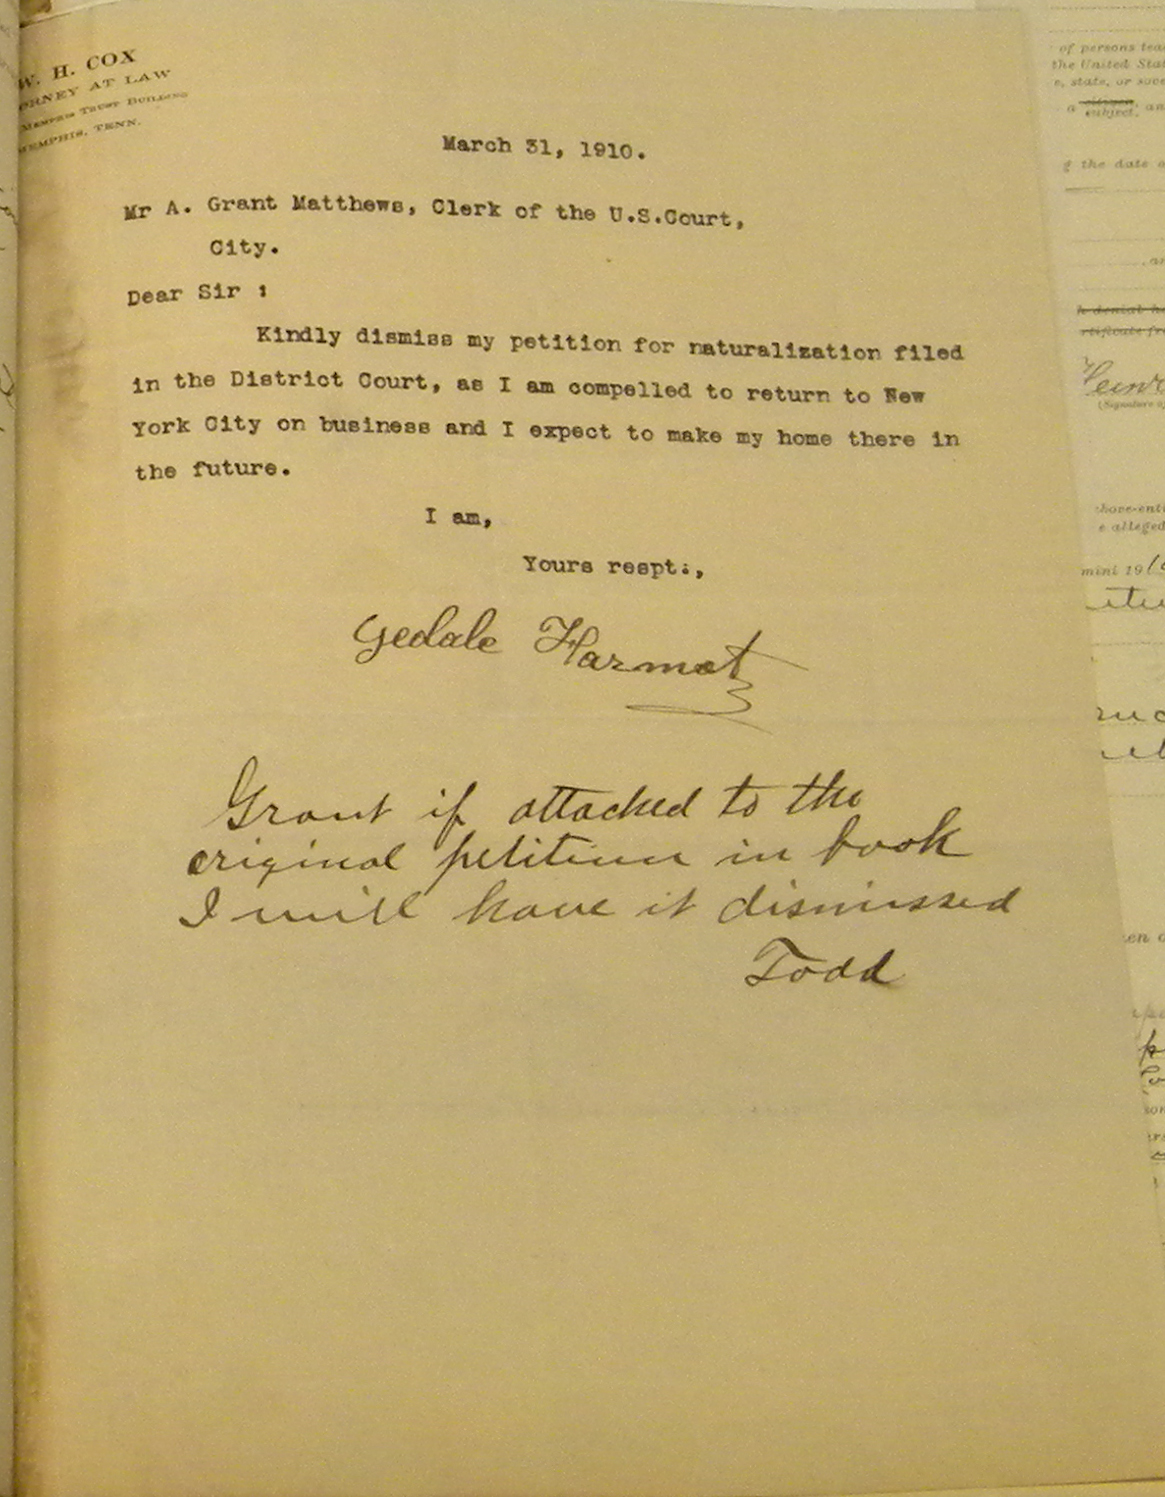 W. H. COX
ORNEY AT LAW
MEMPHIS TRUST BUILDING
MEMPHIS, TENN.
March 31, 1910.
Mr A. Grant Matthews, Clerk of the U.S.Court,
City.
Dear Sir :
Kindly dismiss my petition for naturalization filed
in the District Court, as I am compelled to return to New
York City on business and I expect to make my home there in
the future.
I am,
Yours respt.,
Gedale Harmat
Grant if attached to the
original petition in book
I will have it dismissed
Todd
of persons tea
the United Stat
e, state, or sove
a citizen, an
subject,
g the date o
h denial ha
rtificate fro
Heinr
(Signature o
bove-enti
e alleged
mini 19